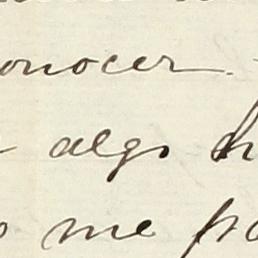 onocer.
algo h
me pa